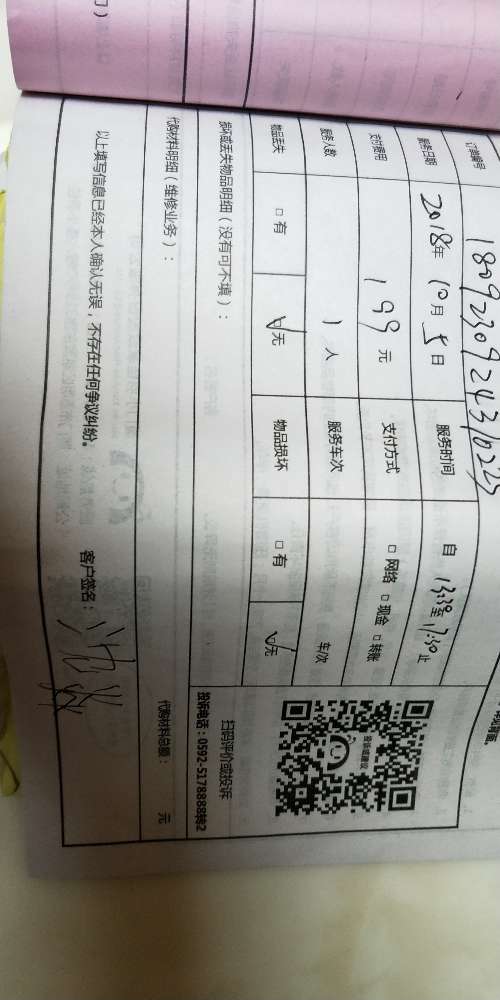 订单编号 180923092431022
服务日期 2018年 10月 5日 服务时间 自 13:38至17:30止
支付费用 199元 支付方式 □ 网络 □ 现金 □ 转账
服务人数 1人 服务车次 车/次
物品丢失 □ 有 ☑ 无 物品损坏 □ 有 ☑ 无
损坏或丢失物品明细（没有可不填）：
扫码评价或投诉
投诉电话：0592-5178888转2
代购材料明细（维修业务）： 代购材料总额： 元
以上填写信息已经本人确认无误，不存在任何争议纠纷。 客户签名：